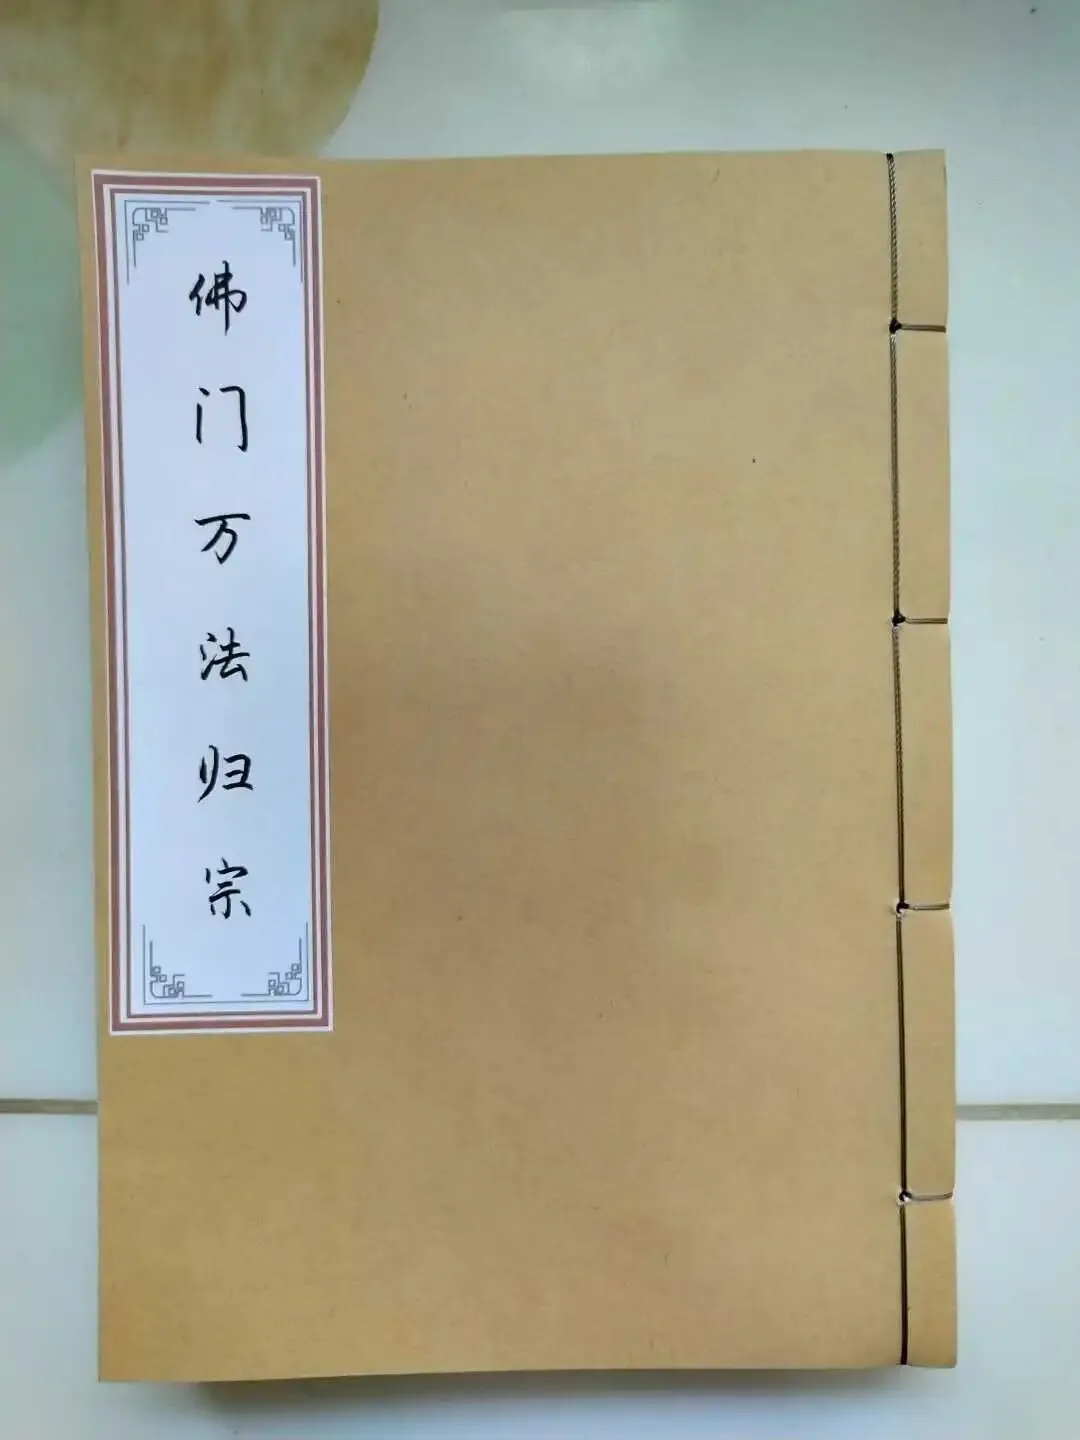 佛门万法归宗